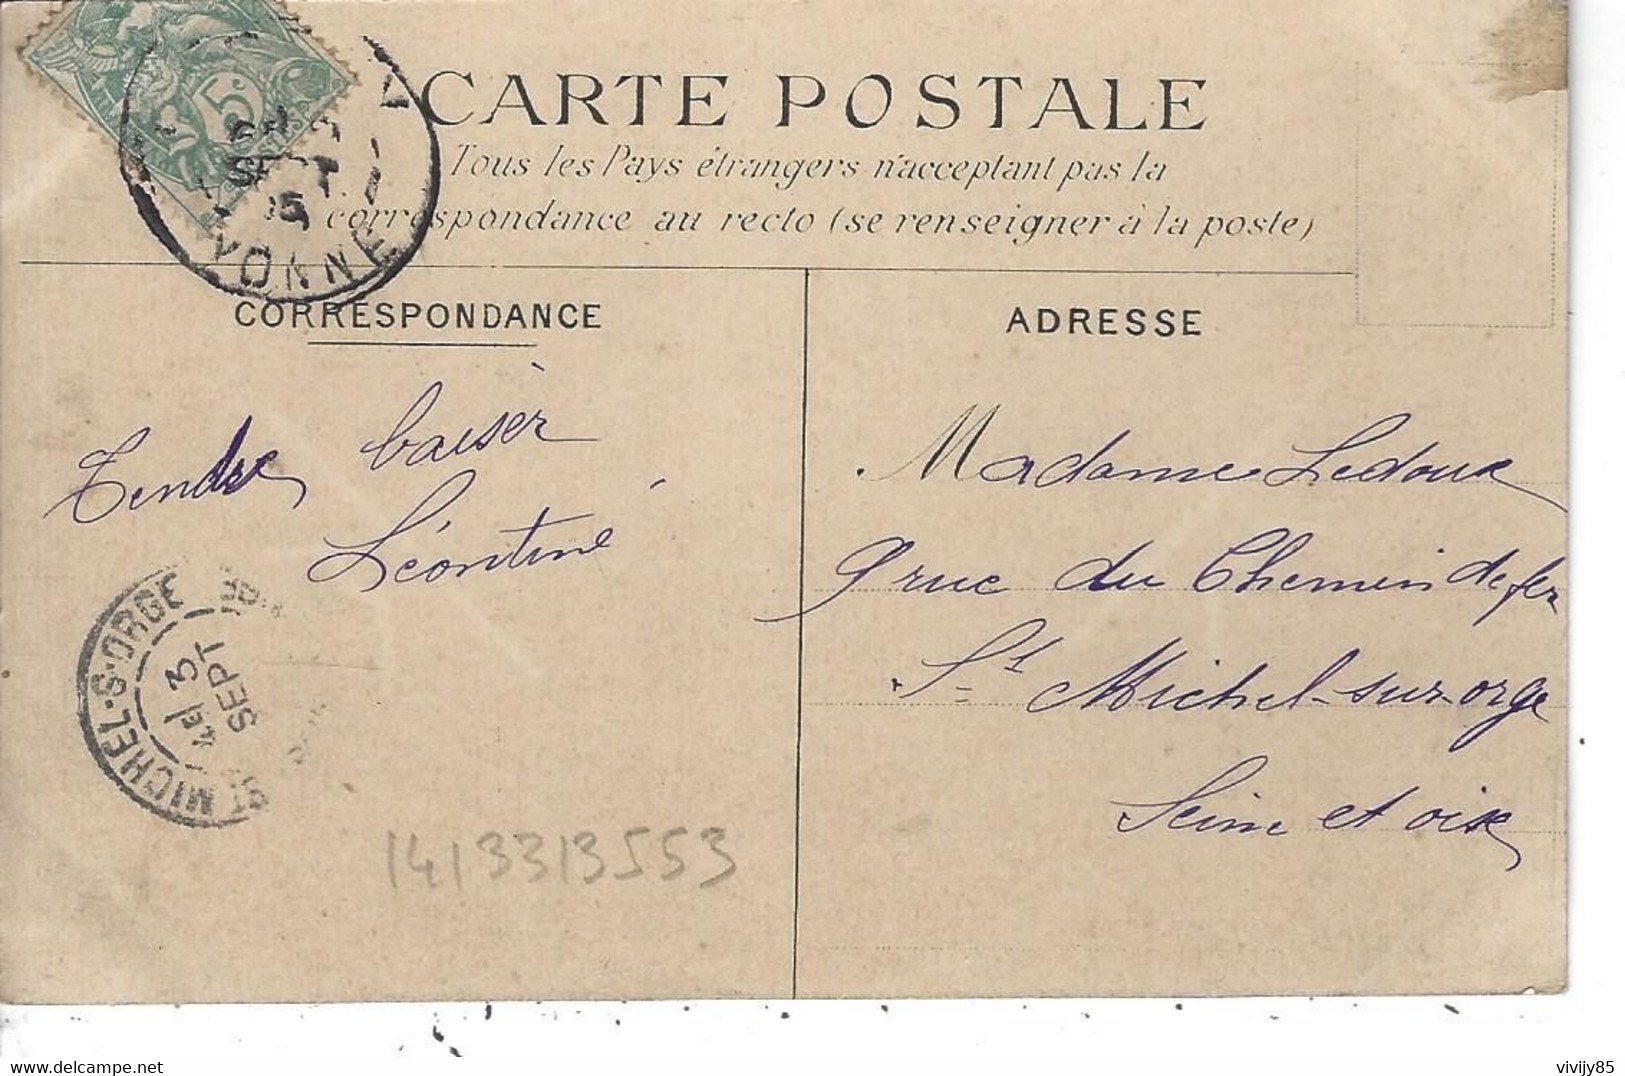 CARTE POSTALE
Tous les Pays étrangers n'acceptant pas la
correspondance au recto (se renseigner à la poste)
5
SEPT.
05
YONNE
CORRESPONDANCE
ADRESSE
Tendre baiser
Léontine
Madame Ledoux
9 rue du Chemin de fer
St Michel-sur-orge
Seine et oise
ST MICHEL-S-ORGE
3
SEPT
1413313553
vivijy85